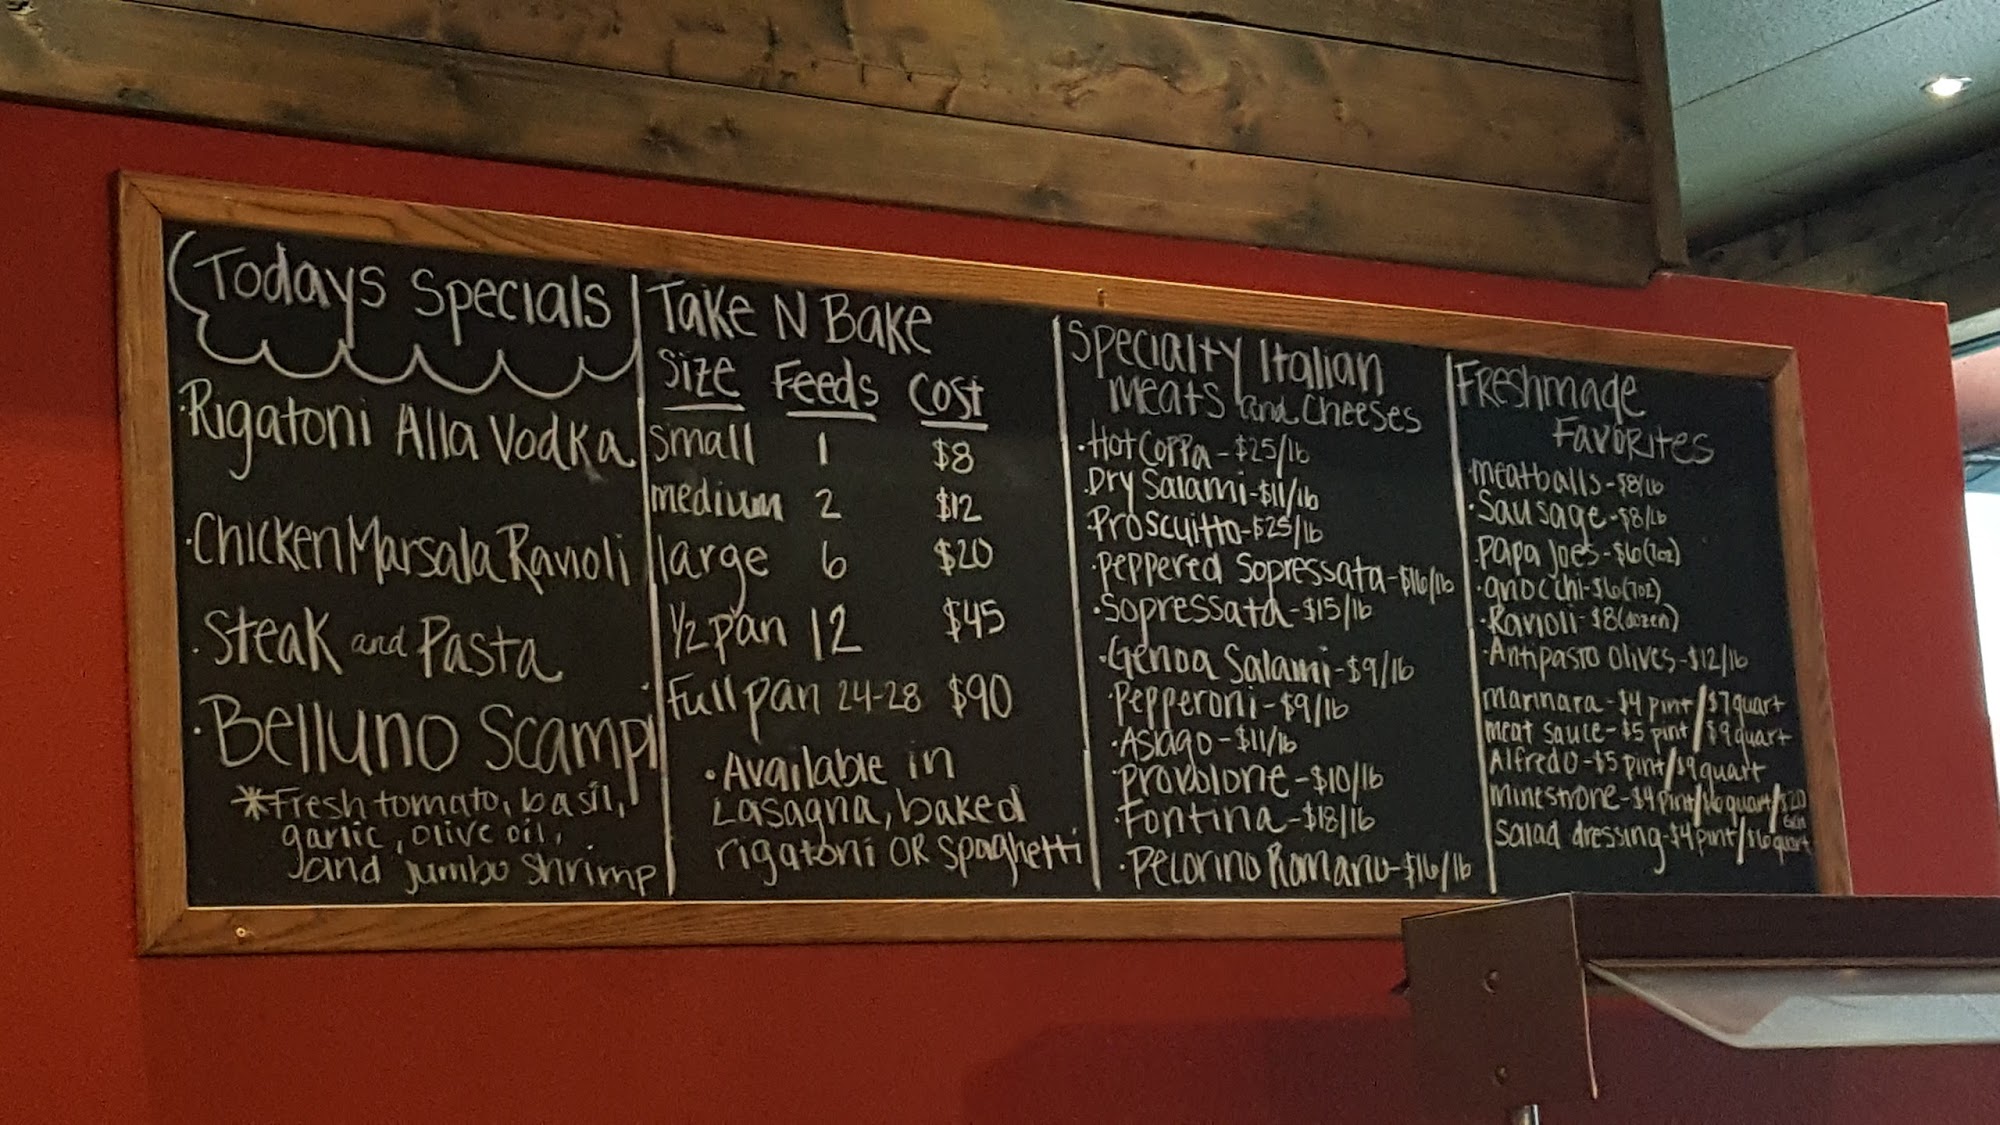 Todays Specials
·Rigatoni Alla Vodka
·Chicken Marsala Ravioli
·Steak and Pasta
·Belluno Scampi
*Fresh tomato, basil,
garlic, olive oil,
and jumbo shrimp
Take N Bake
Size Feeds Cost
small 1 $8
medium 2 $12
large 6 $20
1/2 pan 12 $45
Full pan 24-28 $90
·Available in
Lasagna, baked
rigatoni OR spaghetti
Specialty Italian
Meats and Cheeses
·Hot Coppa-$25/lb
·Dry Salami-$11/lb
·Proscuitto-$25/lb
·Peppered Sopressata-$16/lb
·Sopressata-$15/lb
·Genoa Salami-$9/lb
·Pepperoni-$9/lb
·Asiago-$11/lb
·Provolone-$10/lb
·Fontina-$18/lb
·Pecorino Romano-$16/lb
Freshmade
Favorites
·meatballs-$8/lb
·Sausage-$8/lb
·Papa Joes-$6(7oz)
·gnocchi-$6(7oz)
·Ravioli-$8(dozen)
·Antipasto Olives-$12/lb
Marinara-$4 pint/$7 quart
Meat sauce-$5 pint/$9 quart
Alfredo-$5 pint/$9 quart
Minestrone-$4 pint/$6 quart/$20
Salad dressing-$4 pint/$6 quart